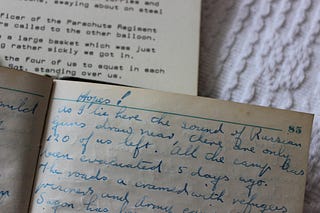 , swaying about on steel
ficer of the Parachute Regiment
re called to the other balloon.
a large basket which was just
ng rather sickly we got in.
the four of us to squat in each
Sgt. standing over us.
Hopes!
85
As I lie here the sound of Russian
guns draw near, there are only
120 of us left. All the camp has
been evacuated 5 days ago.
The roads are crammed with refugees